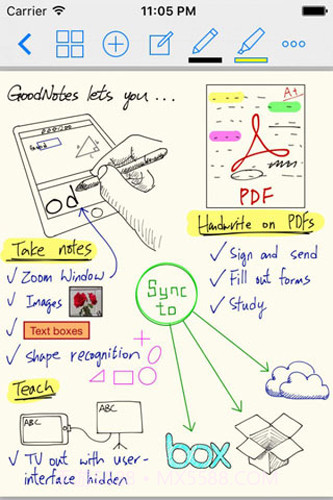 Carrier 11:05 PM
GoodNotes lets you...
A+
PDF
od
Handwrite on PDFs
✓ Sign and send
✓ Fill out forms
✓ Study
Take notes
✓ Zoom Window
✓ Images
✓ Text boxes
✓ shape recognition
Sync
to
Teach
ABC
ABC
✓ TV out with user-
interface hidden
box